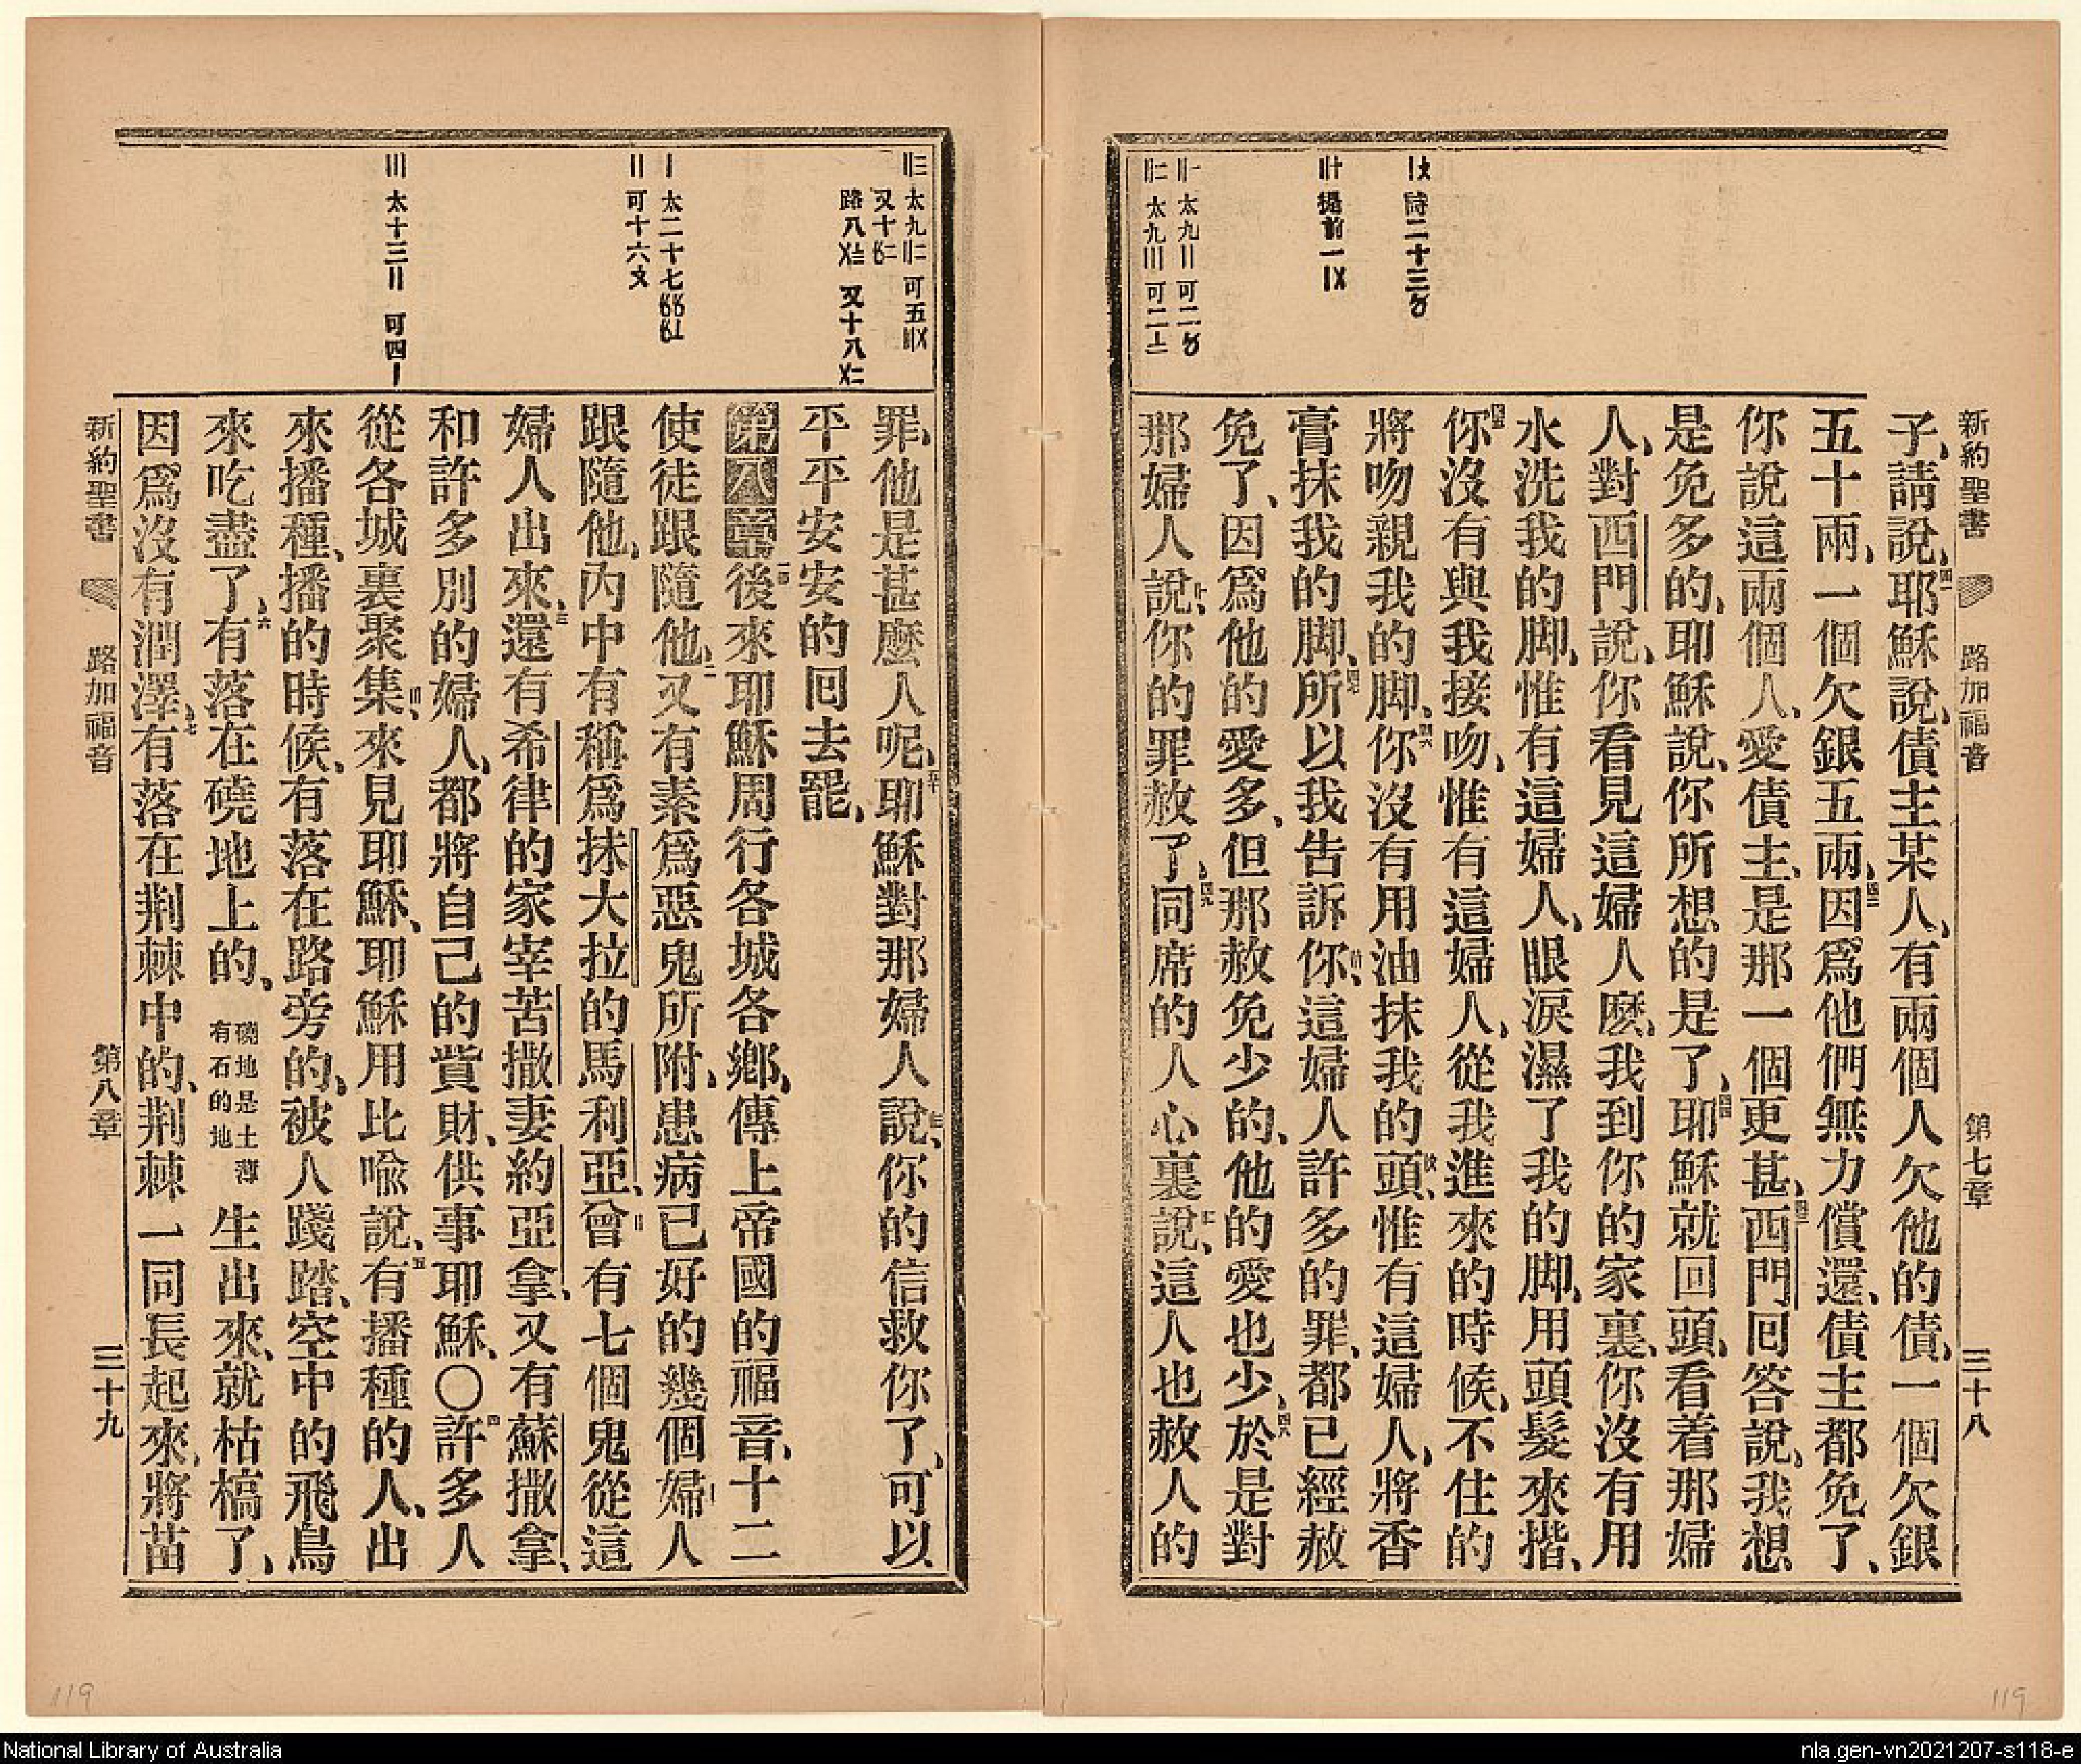 新約聖書 路加福音 第七章 三十八
子、請說、四一耶穌說、債主某人、有兩個人欠他的債、一個欠銀
五十兩、一個欠銀五兩、四二因爲他們無力償還、債主都免了、
你說這兩個人、愛債主、是那一個更甚、四三西門囘答說、我想
是免多的、耶穌說、你所想的是了、四四耶穌就回頭、看着那婦
人、對西門說、你看見這婦人麽、我到你的家裏、你沒有用
水洗我的脚、惟有這婦人、眼淚濕了我的脚、用頭髮來揩、
四五你沒有與我接吻、惟有這婦人、從我進來的時候、不住的
將吻親我的脚、四六你沒有用油抹我的頭、惟有這婦人、將香
膏抹我的脚、四七所以我告訴你、這婦人許多的罪、都已經赦
免了、因爲他的愛多、但那赦免少的、他的愛也少、四八於是對
那婦人說、你的罪赦了、四九同席的人心裏說、這人也赦人的
〡〩 詩二十三〥
〢十 提前一〡〤
〢〡 太九〢 可二〥
〢二 太九〣 可二〧
罪、他是甚麽人呢、五十耶穌對那婦人說、你的信救你了、可以
平平安安的囘去罷、
第八章 一後來耶穌周行各城各鄉、傳上帝國的福音、十二
使徒跟隨他、二又有素爲惡鬼所附、患病已好的幾個婦人
跟隨他、內中有稱爲抹大拉的馬利亞、曾有七個鬼從這
婦人出來、三還有希律的家宰苦撒妻約亞拿、又有蘇撒拿、
和許多別的婦人、都將自己的貲財、供事耶穌、〇四許多人
從各城裏聚集、來見耶穌、耶穌用比喩說、五有播種的人、出
來播種、播的時候、有落在路旁的、被人踐踏、空中的飛鳥
來吃盡了、六有落在磽地上的、磽地是土薄有石的地 生出來、就枯槁了、
因爲沒有潤澤、七有落在荆棘中的、荆棘一同長起來、將苗
〢三 太九〢二 可五〣〤
又十〤二
路八〤〨 又十八〤二
〡 太二十七〥〥 〥〦
〢 可十六〩
〣 太十三〢 可四〡
新約聖書 路加福音 第八章 三十九
119
119
National Library of Australia
nla.gen-vn2021207-s118-e